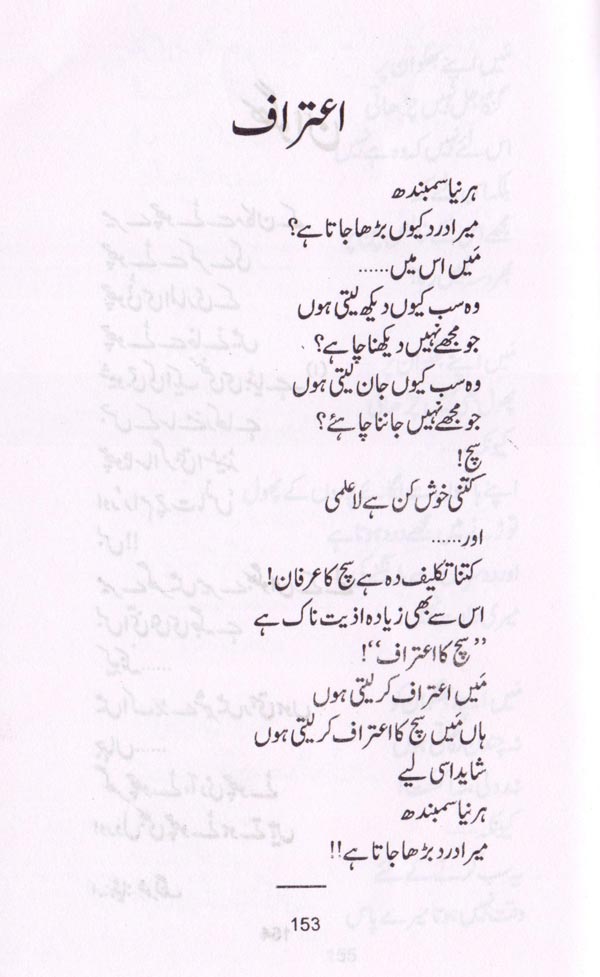 اعتراف
ہر نیا سمبندھ
میرا درد کیوں بڑھا جاتا ہے؟
مَیں اس میں......
وہ سب کیوں دیکھ لیتی ہوں
جو مجھے نہیں دیکھنا چاہے؟
وہ سب کیوں جان لیتی ہوں
جو مجھے نہیں جاننا چاہئے؟
سچ!
کتنی خوش کن ہے لاعلمی
اور......
کتنا تکلیف دہ ہے سچ کا عرفان!
اس سے بھی زیادہ اذیت ناک ہے
”سچ کا اعتراف“!
مَیں اعتراف کر لیتی ہوں
ہاں مَیں سچ کا اعتراف کر لیتی ہوں
شاید اسی لیے
ہر نیا سمبندھ
میرا درد بڑھا جاتا ہے!!
153